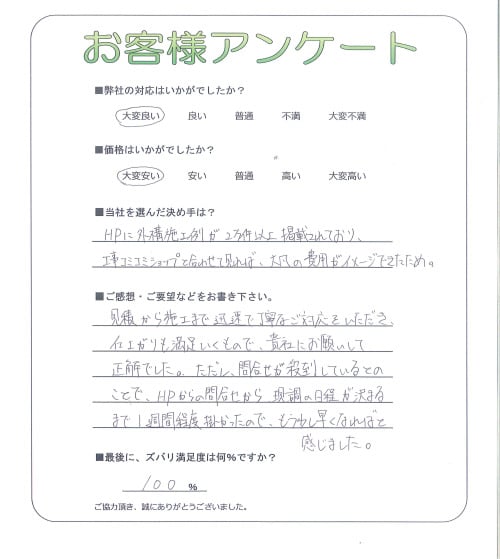 お客様アンケート
■弊社の対応はいかがでしたか?
大変良い 良い 普通 不満 大変不満
■価格はいかがでしたか?
大変安い 安い 普通 高い 大変高い
■当社を選んだ決め手は?
HPに外構施工例が2万件以上掲載されており、
工事コミコミショップと合わせて見れば、大凡の費用がイメージできたため。
■ご感想・ご要望などをお書き下さい。
見積から施工まで迅速で丁寧なご対応をいただき、
仕上がりも満足いくもので、貴社にお願いして
正解でした。ただし、問合せが殺到しているとの
ことで、HPからの問合せから現調の日程が決まる
まで1週間程度掛かったので、もう少し早くなればと
感じました。
■最後に、ズバリ満足度は何%ですか?
100 %
ご協力頂き、誠にありがとうございました。